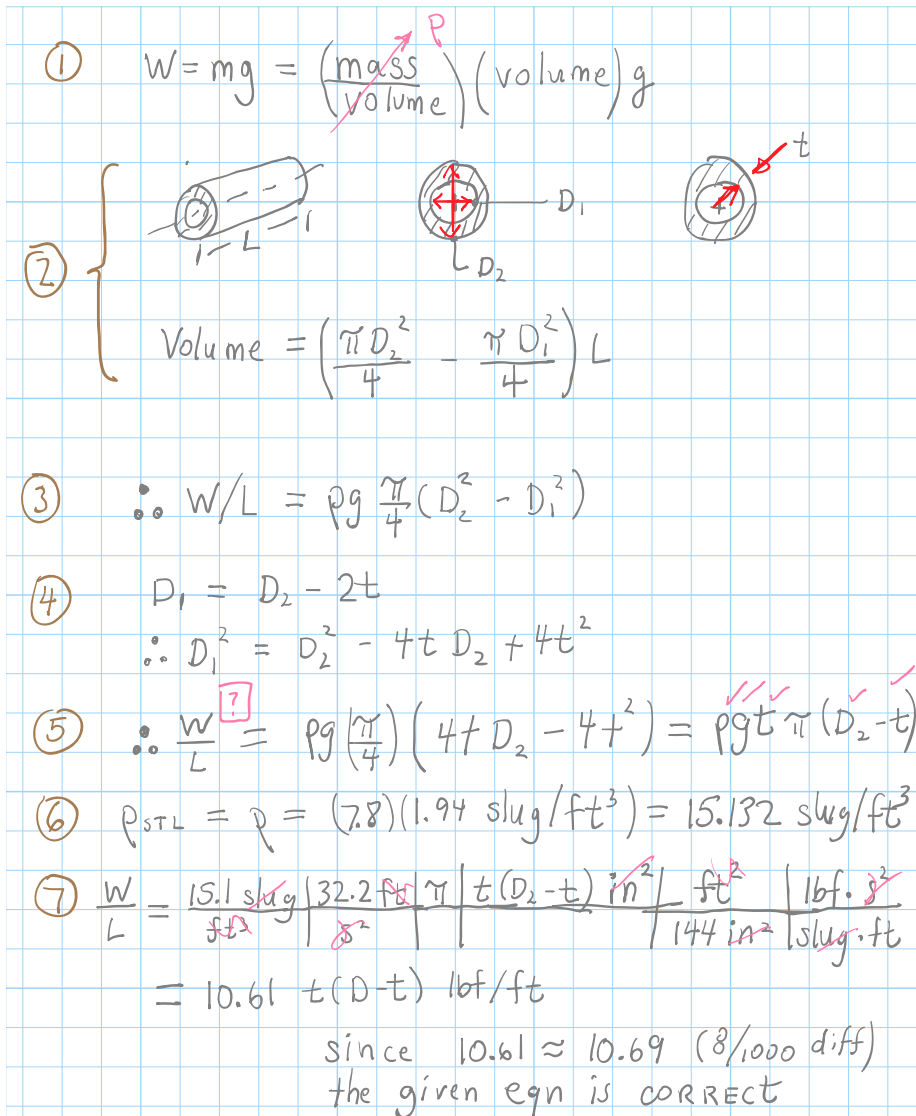 ① W = mg = (mass/volume)(volume)g ρ
② L D₁ D₂ t
Volume = (πD₂²/4 − πD₁²/4) L
③ ∴ W/L = ρg π/4 (D₂² − D₁²)
④ D₁ = D₂ − 2t
∴ D₁² = D₂² − 4t D₂ + 4t²
⑤ ∴ W/L =[?] ρg(π/4)(4tD₂ − 4t²) = ρgtπ(D₂−t)
⑥ ρSTL = ρ = (7.8)(1.94 slug/ft³) = 15.132 slug/ft³
⑦ W/L = 15.1 slug/ft³ | 32.2 ft/s² | π | t(D₂−t) in² | ft²/144 in² | lbf·s²/slug·ft
= 10.61 t(D−t) lbf/ft
since 10.61 ≈ 10.69 (8/1000 diff)
the given eqn is CORRECT